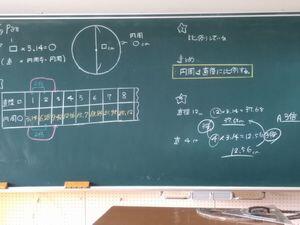 □×3.14=○
(直×円周率=円周)
円周
○cm
□cm
2倍
直径□ 1 2 3 4 5 6 7 8
円周○ 3.14 6.28 9.42 12.56 15.7 18.84 21.98 25.12
2倍
☆
比例している
まとめ
円周は直径に比例する。
☆
直径12m 12×3.14=37.68
37.68m
3倍
直4m 4×3.14=12.56
12.56m
3倍
A 3倍